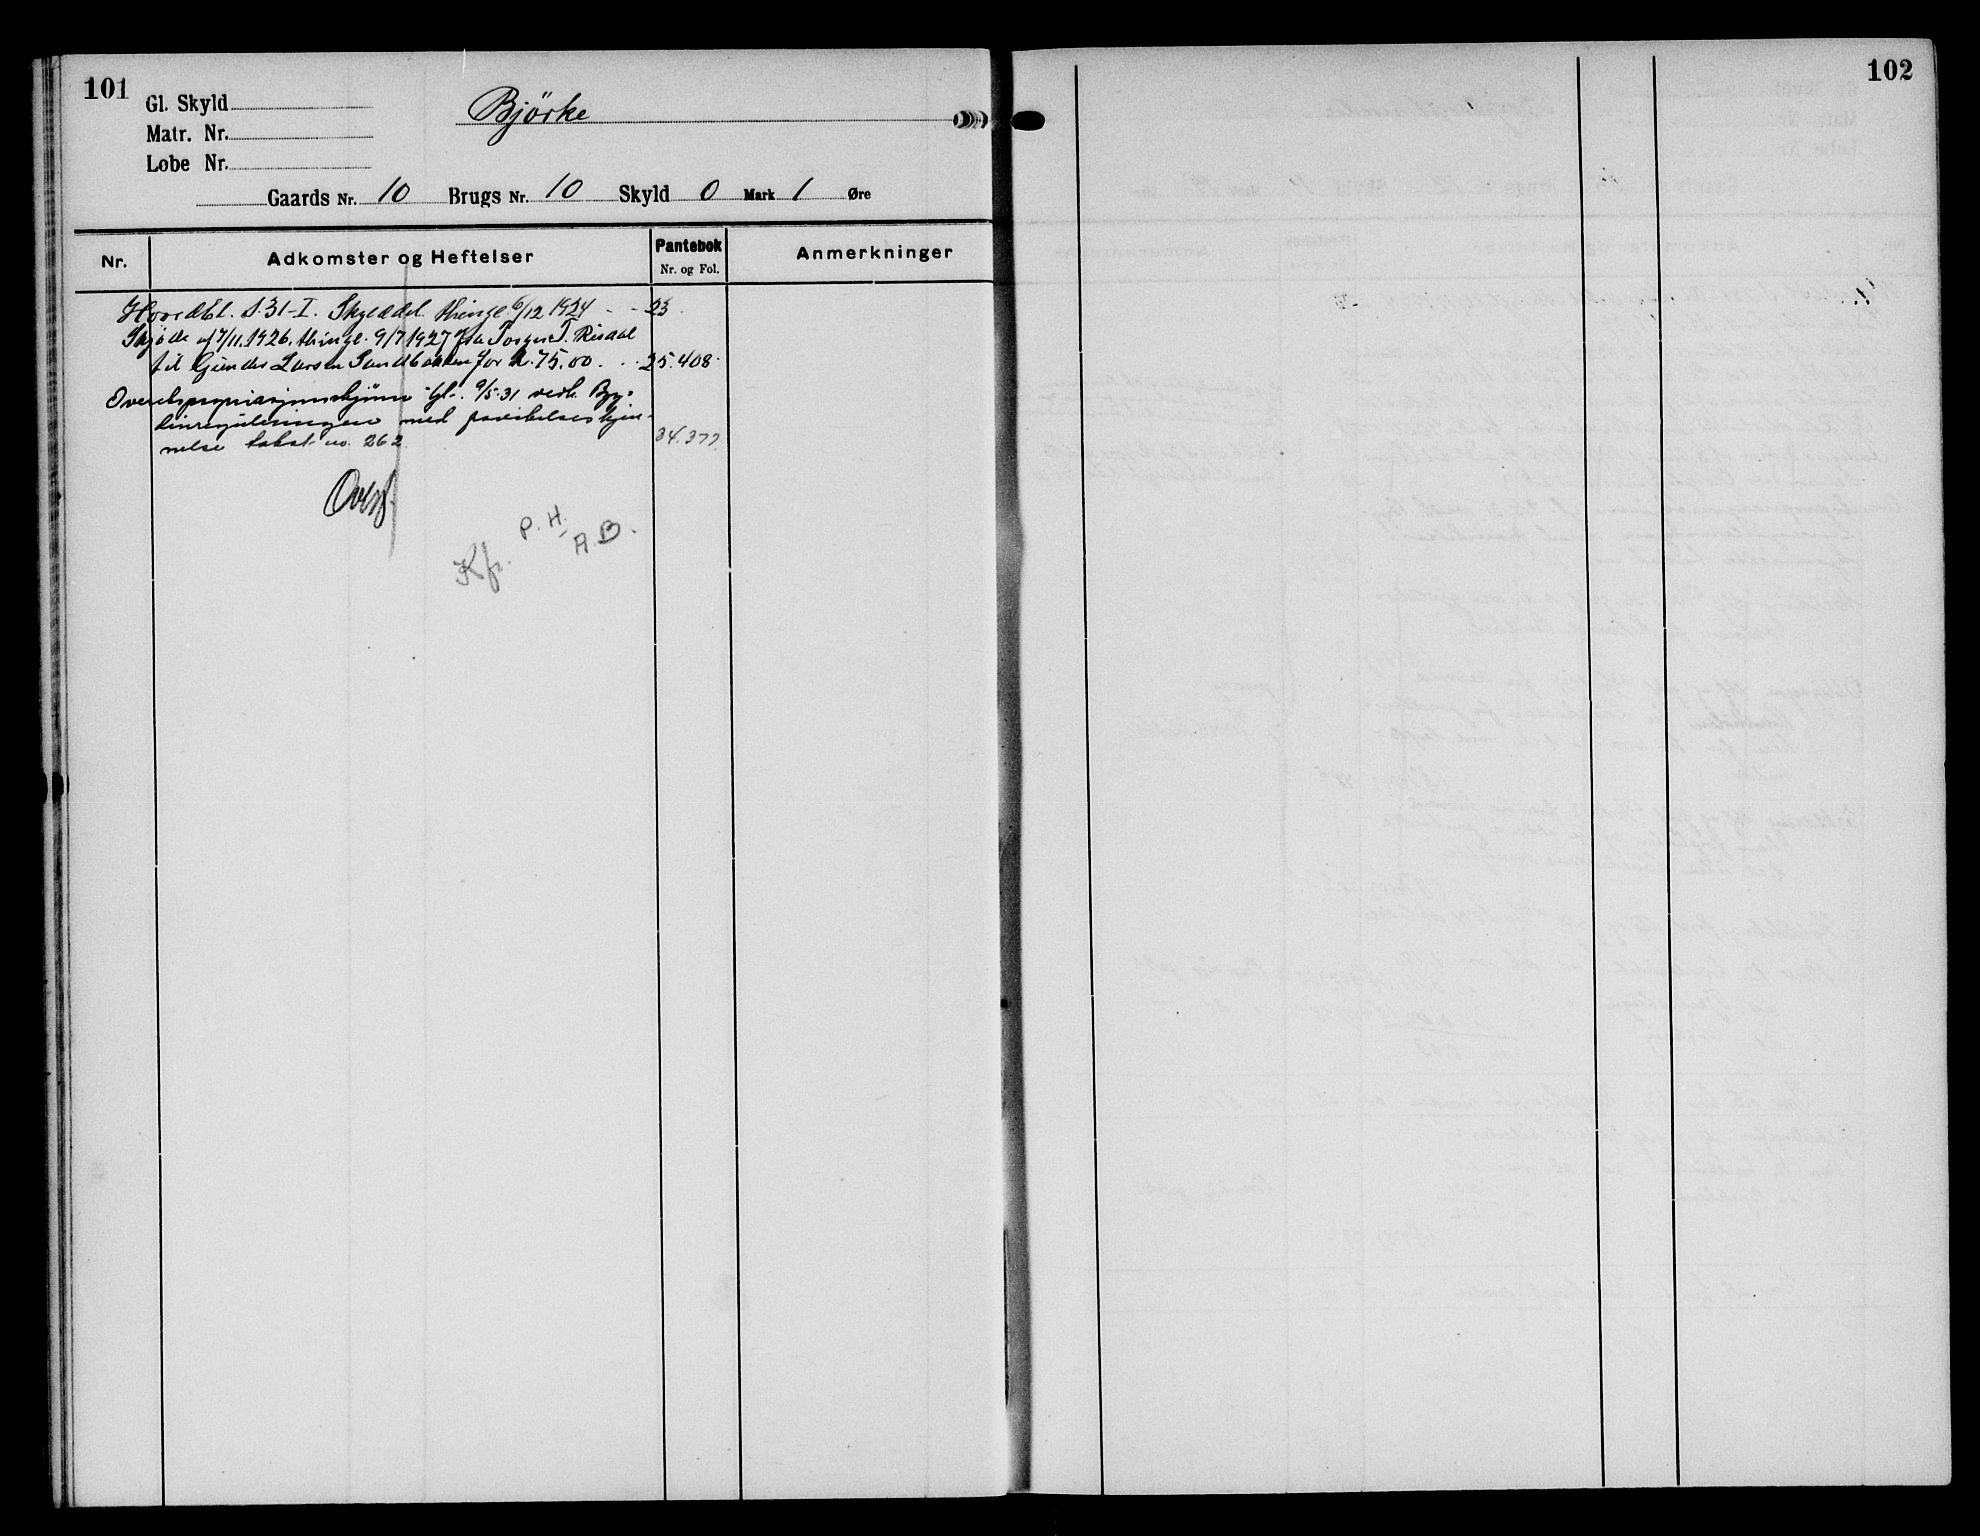 101
Gl. Skyld
Matr. Nr.
Løbe Nr.
Bjørke
Gaards Nr. 10 Brugs Nr. 10 Skyld 0 Mark 1 Øre
Nr. Adkomster og Heftelser Pantebok Nr. og Fol. Anmerkninger
Hovedbl. S. 31-I. Skylddel. thingl. 6/12 1924 - - 23
Skjøde af 7/11.1926, thingl. 9/7 1927 fra Torger T. Risdal
til Gunder Larsen Sandbakken for k. 75,00. - - 25.408
Overekspropriasjonsskjønn tgl. 9/5-31 vedk. Byg-
linreguleringen med kjen-
nelse takst no. 262 34.377
Overf.
P. H.
A. B.
Kfr.
102